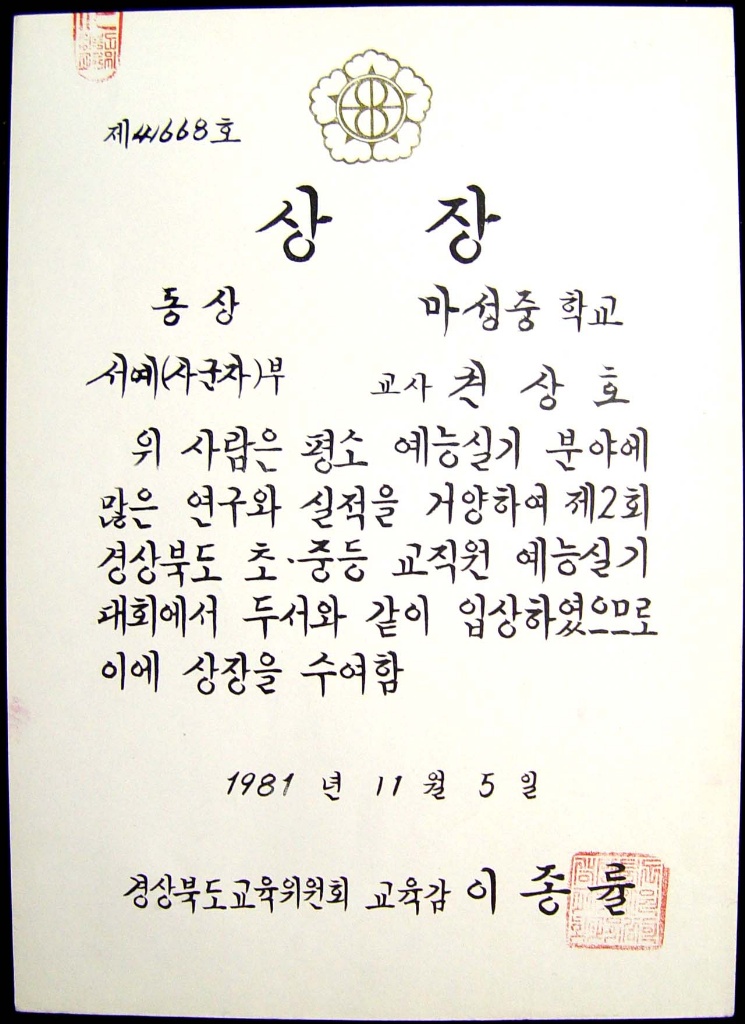 제41668호
상 장
동상 마성중학교
서예(사군자)부 교사 권상호
위 사람은 평소 예능실기 분야에
많은 연구와 실적을 거양하여 제2회
경상북도 초·중등 교직원 예능실기
대회에서 두서와 같이 입상하였으므로
이에 상장을 수여함
1981년 11월 5일
경상북도교육위원회 교육감 이종률